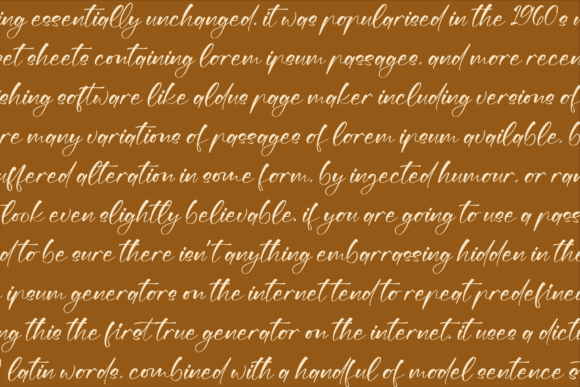 ing essentially unchanged. it was popularised in the 1960s
et sheets containing lorem ipsum passages. and more recen
ishing software like aldus page maker including versions of
re many variations of passages of lorem ipsum available. b
uffered alteration in some form. by ingected humour. or ran
look even slightly believable. if you are going to use a pass
d to be sure there isn't anything embarrassing hidden in the
ipsum generators on the internet tend to repeat predefine
ng this the first true generator on the internet. it uses a dicti
latin words. combined with a handful of model sentence s